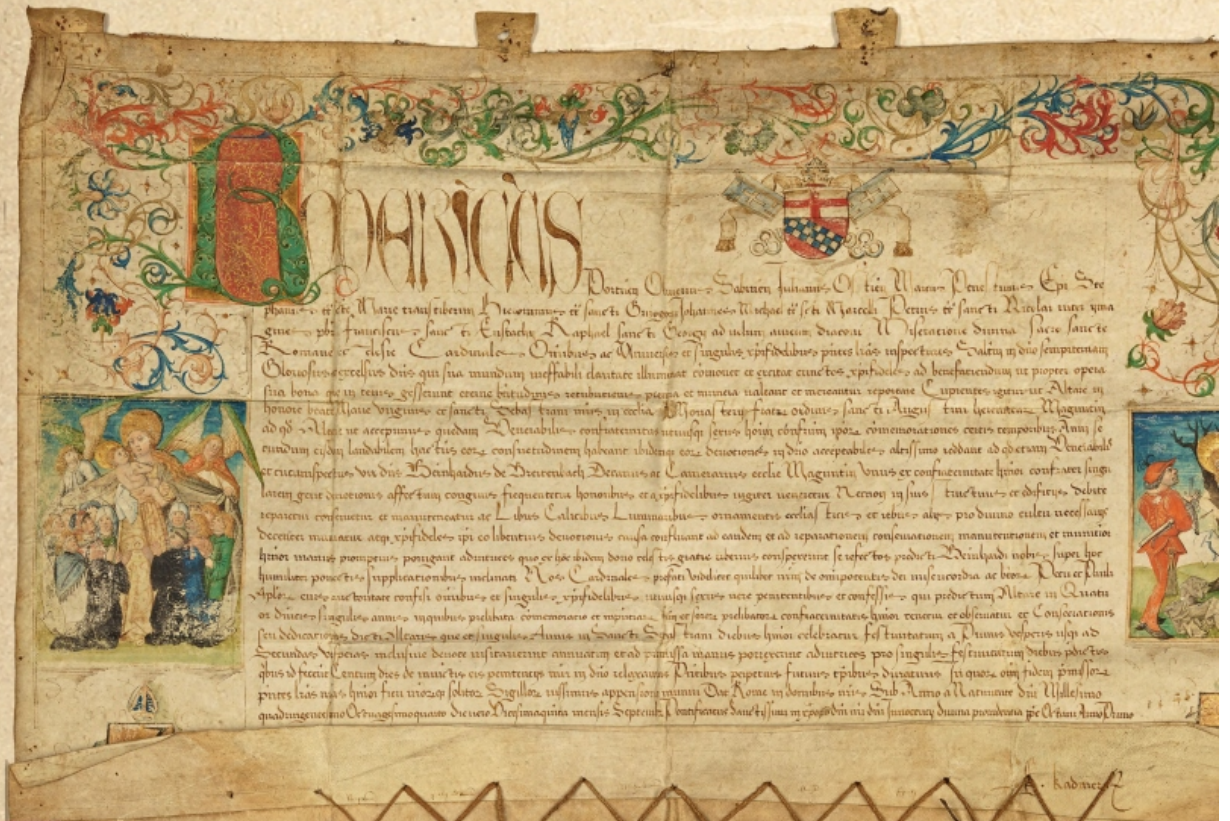 RODERICUS
Portuen Oliverius Sabinen Julianus Ostien Marcus Penestrinus Epi Ste
phanus tt scte Marie transtiberim Hieronimus tt sancti Grisogoni Johannes Michael tt scti Marcelli Petrus tt sancti Nicolai inter yma
gines pbri Franciscus sancti Eustachij Raphael sancti Georgij ad velum aureum diaconi Miseratione divina sacro sancte
Romane ecclesie Cardinales Omnibus ac Universis et singulis xpifidelibus pntes lras inspecturis Saltm in dno sempiternam
Gloriosus et excelsus dns qui sua mundum ineffabili claritate illuminat comonet et excitat cunctos xpifideles ad benefaciendum ut propter opera
sua bona que in terris gesserint eterne btitudinis retributionis premia et munera valeant et mereantur reportare Cupientes igitur ut Altare in
honore beate Marie virginis et sancti Sebastiani in ecclia Monasterij fratrum ordinis sancti Augustini heremitarum Maguntin
ad qd Altare ut accepimus quedam Venerabilis confraternitas utriusque sexus hoim certis temporibus Anni se
cundum eisdem laudabilem hactenus consuetudinem habeant ibidem eorum devotiones in dno acceptabiles altissimo reddant ad quod etiam Venerabilis
et circumspectus vir dns Bernhardus de Breitenbach Decanus ac Camerarius ecclie Maguntin Unus ex confraternitate hmoi confrater singu
larem gerit devotionis affectum congruis frequentetur honoribus et a xpifidelibus iugiter veneretur Necnon in suis structuris et edificijs debite
reparetur conservetur et manuteneatur ac Libris Calicibus Luminaribus ornamentis ecclesiasticis et rebus alijs pro divino cultu necessarijs
decenter muniatur atque xpifideles ipi eo libentius devotionis causa confluant ad eandem et ad reparationem conservationem manutentionem et munitionem
hmoi manus promptius porrigant adiutrices quo ex hoc ibidem dono celestis gratie uberius conspexerint se refectos predicti Bernhardi nobis super hoc
humiliter porrectis supplicationibus inclinati Nos Cardinales prefati videlicet quilibet nrm de omnipotentis dei misericordia ac btorum Petri et Pauli
Aplorum eius auctoritate confisi omnibus et singulis xpifidelibus utriusque sexus vere penitentibus et confessis qui predictum Altare in Quatu
or diversis singulis annis in quibus prelibata comemoratio et confraternitatis hmoi teneri et observari et Consecrationis
seu dedicationis dicti Altaris que et singulis Annis in Sancti Sebastiani diebus hmoi celebratur festivitatum a Primis vesperis usque ad
Secundas vesperas inclusive devote visitaverint annuatim et ad premissa manus porrexerint adiutrices pro singulis festivitatum diebus pdictis
qbus id fecerint Centum dies de iniunctis eis penitentijs mir in dno relaxamus Pntibus perpetuis futuris tpibus duraturis In quorum omi fidem premissorum
pntes lras nras hmoi fieri nrorumque solitorum Sigillorum iussimus appensione muniri Dat Rome in domibus nris Sub Anno a Nativitate dni Millesimo
quadringentesimo Octuagesimoquarto die vero Decimaquinta mensis Septembr Pontificatus Sanctissimi in xpo patris et dni nri dni Innocentij divina providentia ppe Octavi Anno Primo
Kadmer